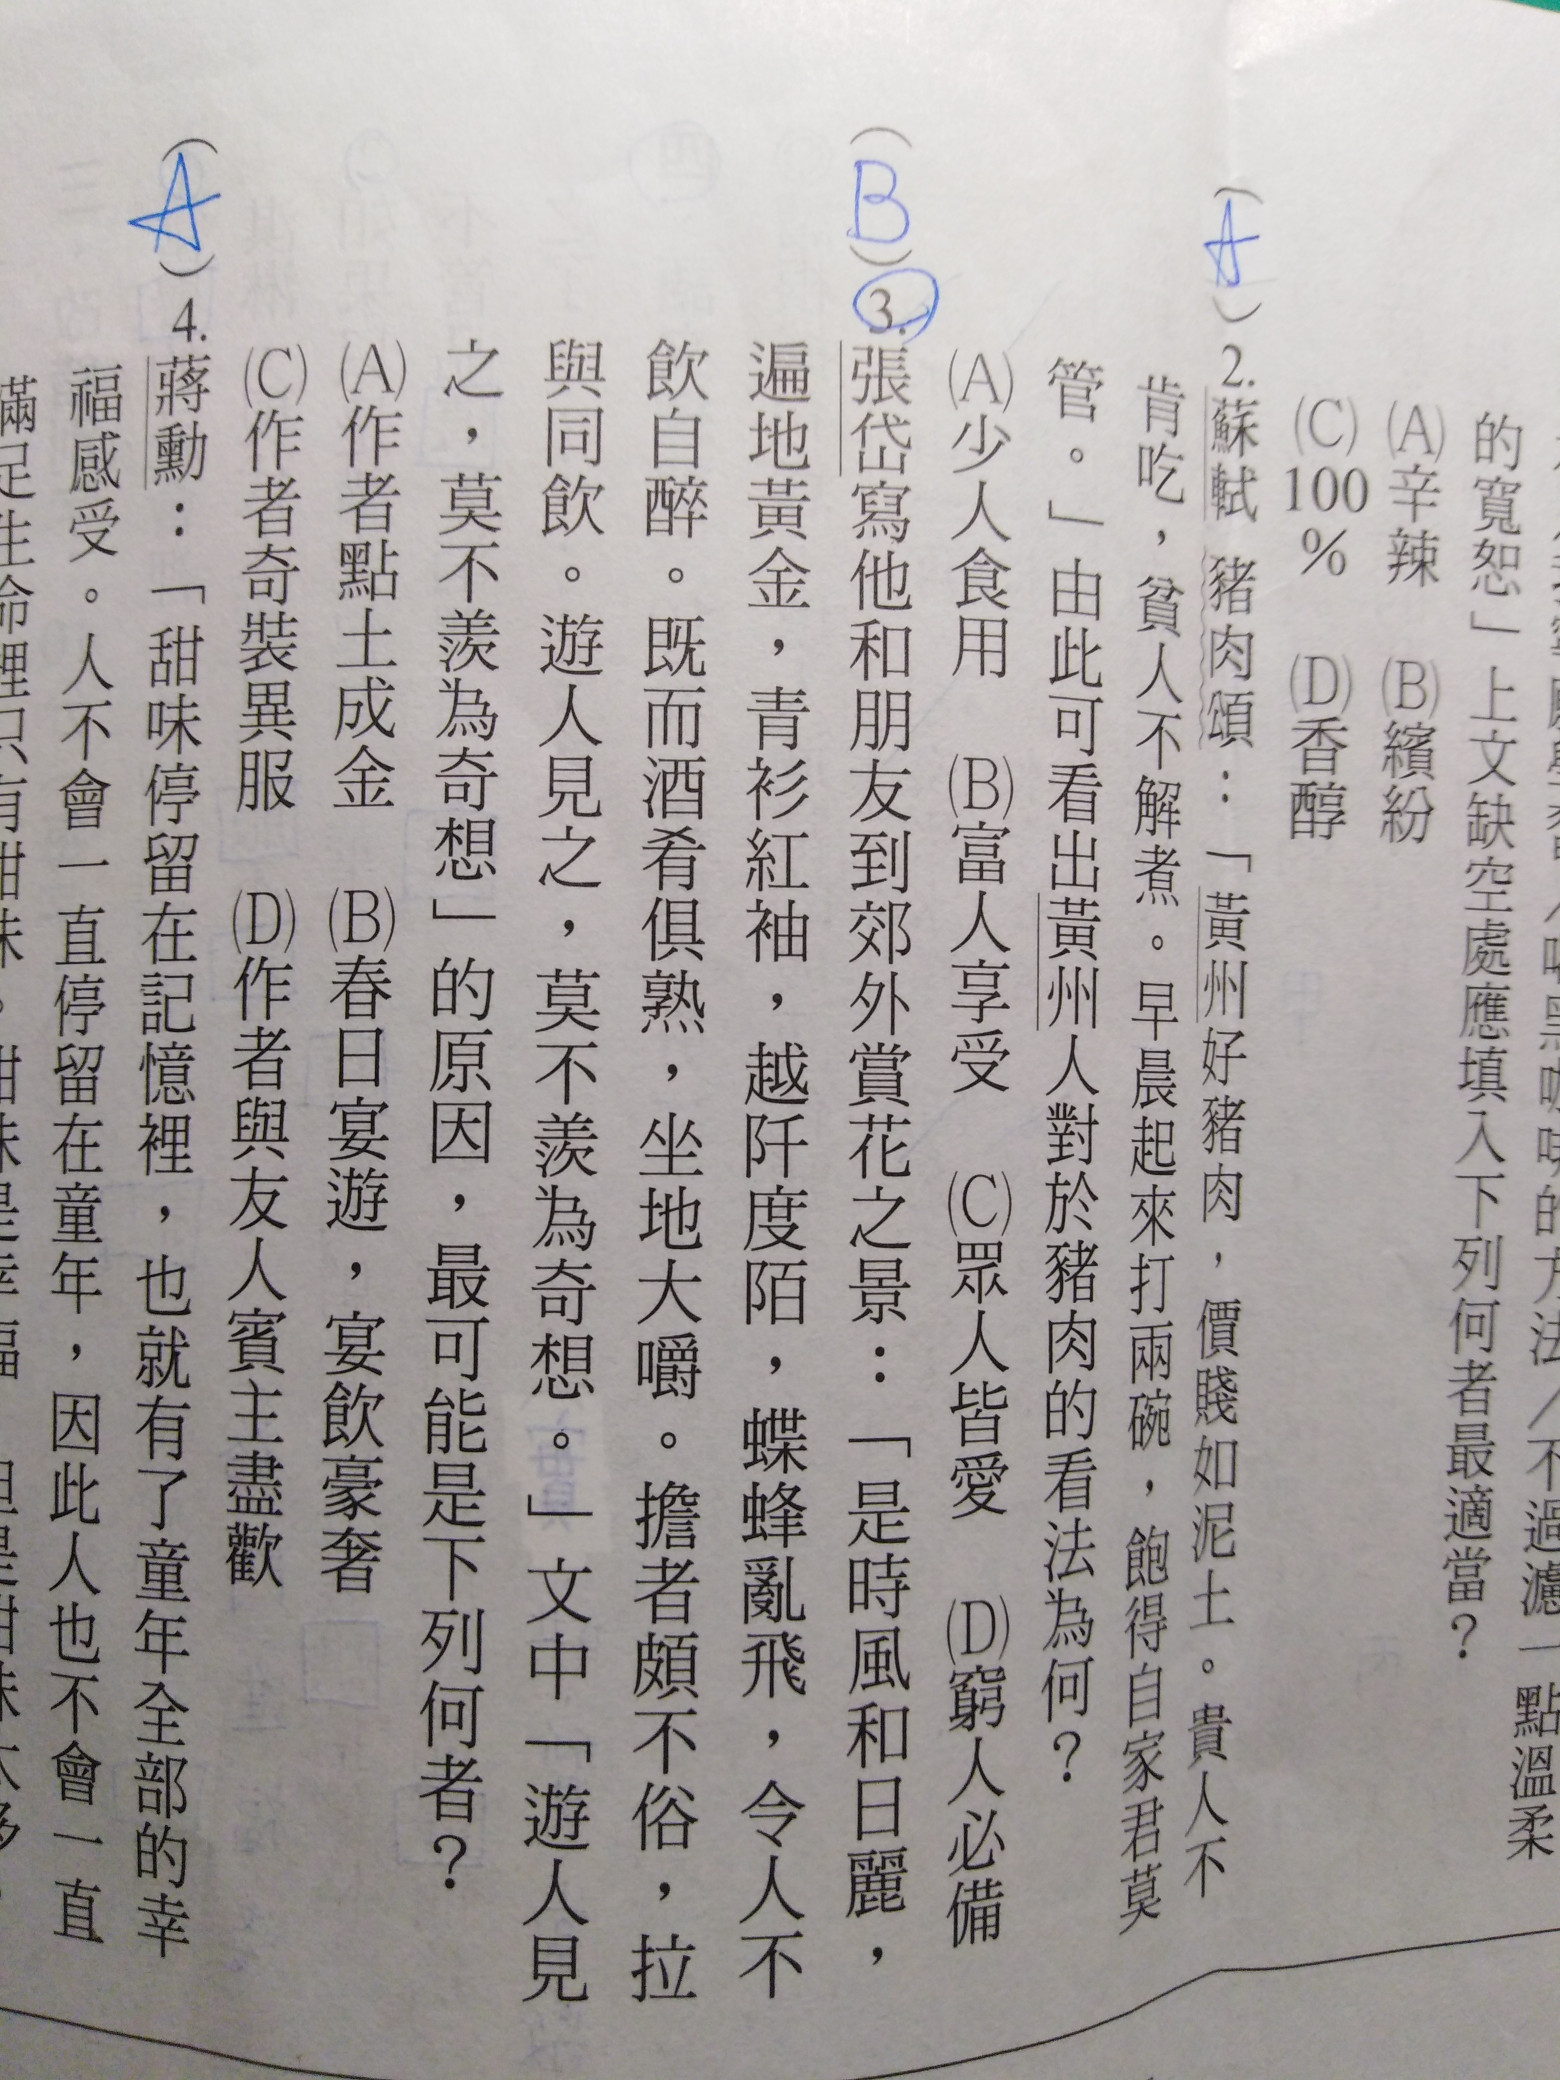 的方法／不過濾一點溫柔
的寬恕」上文缺空處應填入下列何者最適當？
(A)辛辣　(B)繽紛
(C)100%　(D)香醇
(A)2.蘇軾 豬肉頌：「黃州好豬肉，價賤如泥土。貴人不
肯吃，貧人不解煮。早晨起來打兩碗，飽得自家君莫
管。」由此可看出黃州人對於豬肉的看法為何？
(A)少人食用　(B)富人享受　(C)眾人皆愛　(D)窮人必備
(B)3.張岱寫他和朋友到郊外賞花之景：「是時風和日麗，
遍地黃金，青衫紅袖，越阡度陌，蝶蜂亂飛，令人不
飲自醉。既而酒肴俱熟，坐地大嚼。擔者頗不俗，拉
與同飲。遊人見之，莫不羨為奇想。」文中「遊人見
之，莫不羨為奇想」的原因，最可能是下列何者？
(A)作者點土成金　(B)春日宴遊，宴飲豪奢
(C)作者奇裝異服　(D)作者與友人賓主盡歡
(A)4.蔣勳：「甜味停留在記憶裡，也就有了童年全部的幸
福感受。人不會一直停留在童年，因此人也不會一直
滿足生命裡只有甜味。甜味是幸福